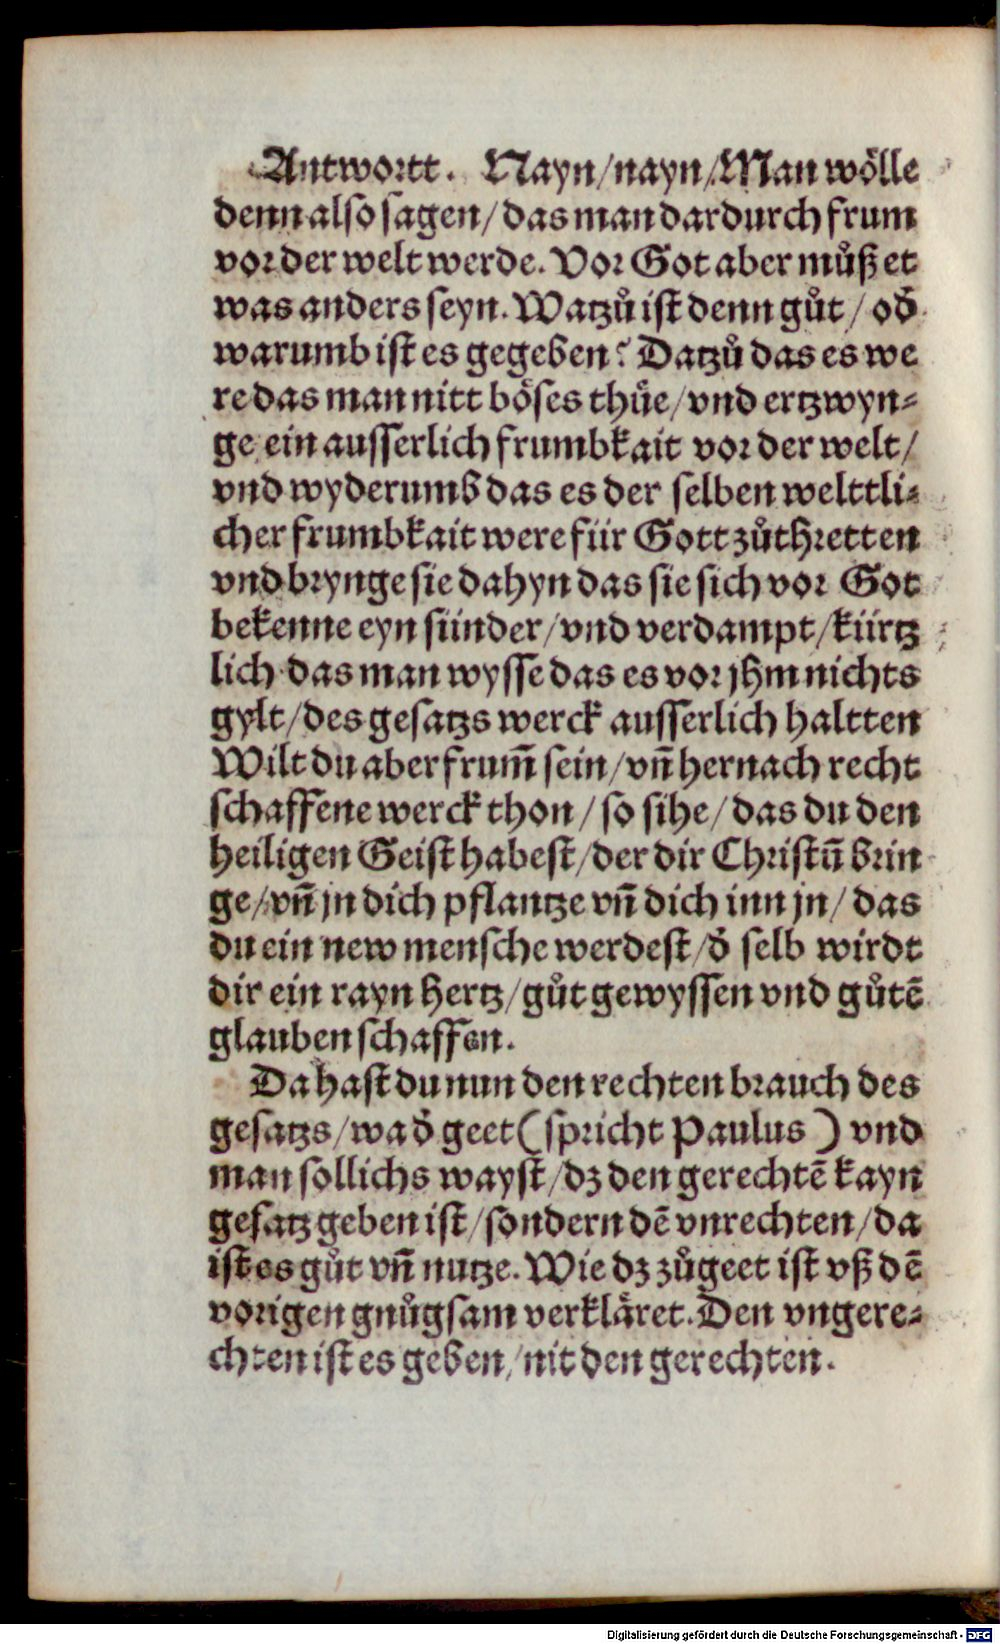 Antwortt. Nayn/nayn/Man wölle
denn also sagen/das man dardurch frum
vor der welt werde. Vor Got aber můß et
was anders seyn. Watzů ist denn gůt/ od̄
warumb ist es gegeben? Datzů das es we
re das man nitt böses thüe/vnd ertzwyn⸗
ge ein ausserlich frumbkait vor der welt/
vnd wyderumb das es der selben welttli⸗
cher frumbkait were für Gott zůthretten
vnd brynge sie dahyn das sie sich vor Got
bekenne eyn sünder/vnd verdampt/kürtz
lich das man wysse das es vor jhm nichts
gylt/des gesatzs werck ausserlich haltten
Wilt du aber frum̄ sein/vn̄ hernach recht
schaffene werck thon/so sihe/das du den
heiligen Geist habest/der dir Christū brin
ge/vn̄ jn dich pflantze vn̄ dich inn jn/das
du ein new mensche werdest/d̄ selb wirdt
dir ein rayn hertz/gůt gewyssen vnd gůtē
glauben schaffen.
Da hast du nun den rechten brauch des
gesatzs/wad̄ geet (spricht Paulus) vnd
man sollichs wayst/dz den gerechtē kayn
gesatz geben ist/sondern dē vnrechten/da
ist es gůt vn̄ nutze. Wie dz zůgeet ist vß dē
vorigen gnůgsam verkläret. Den vngere⸗
chten ist es geben/nit den gerechten.
Digitalisierung gefördert durch die Deutsche Forschungsgemeinschaft - DFG